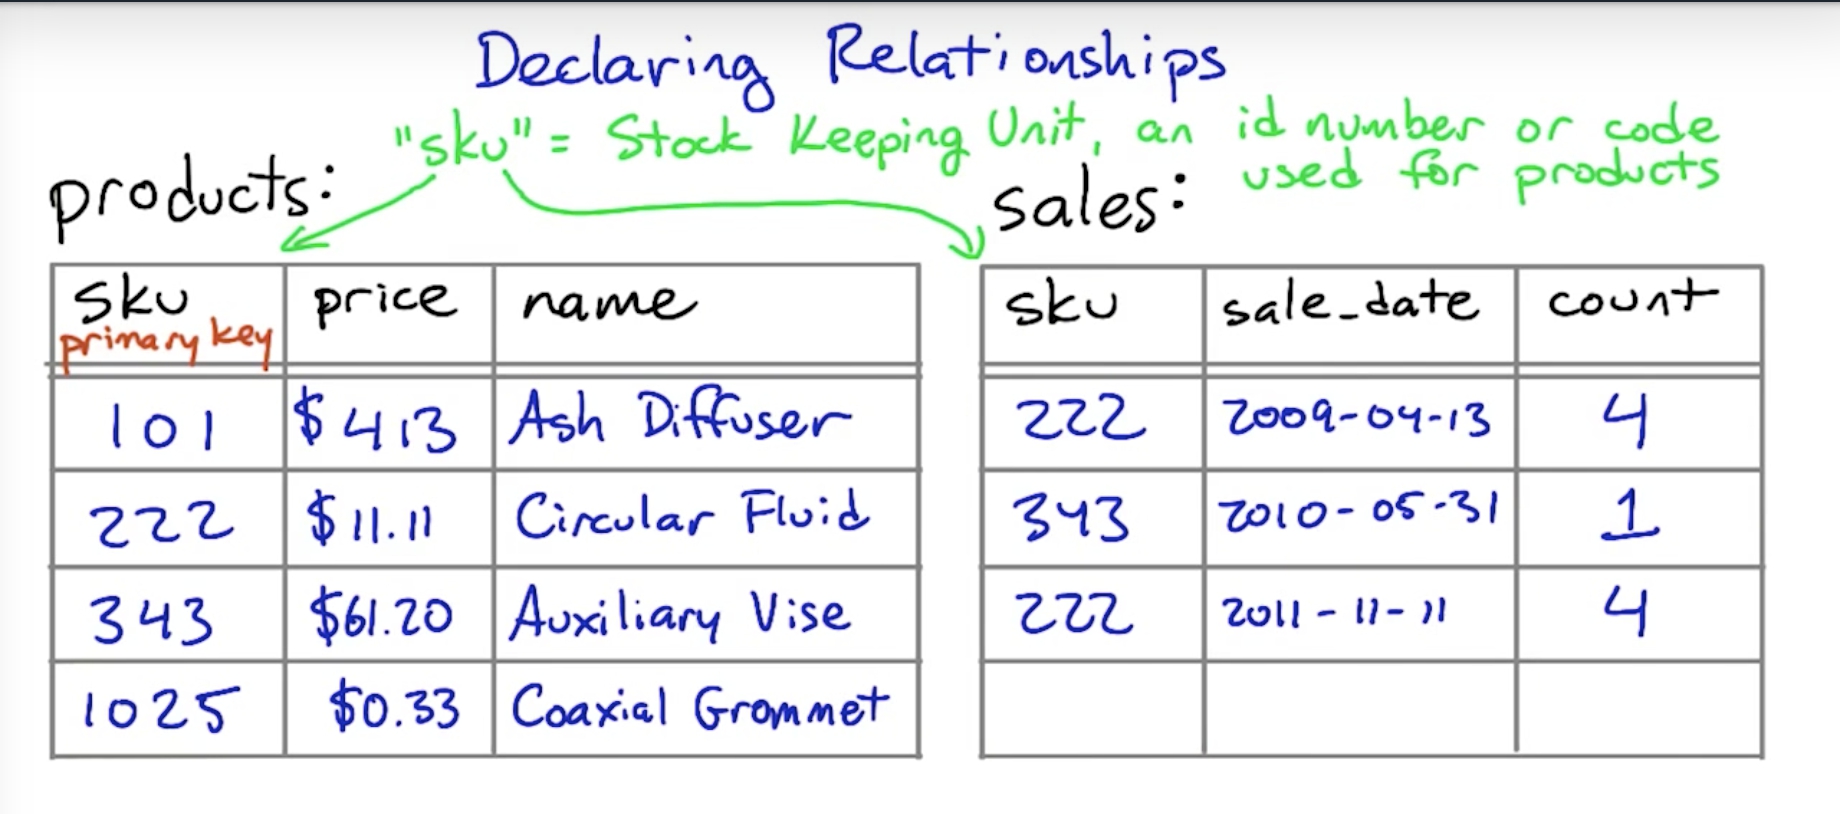 Declaring Relationships
"sku" = Stock Keeping Unit, an id number or code
used for products
products:
sku price name
primary key
101 $413 Ash Diffuser
222 $11.11 Circular Fluid
343 $61.20 Auxiliary Vise
1025 $0.33 Coaxial Grommet
sales:
sku sale_date count
222 2009-04-13 4
343 2010-05-31 1
222 2011-11-11 4